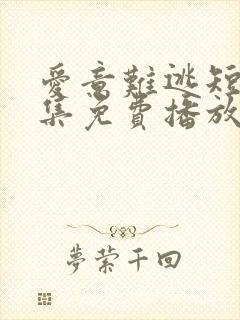 愛意難逃短
集免費播放
夢縈千回